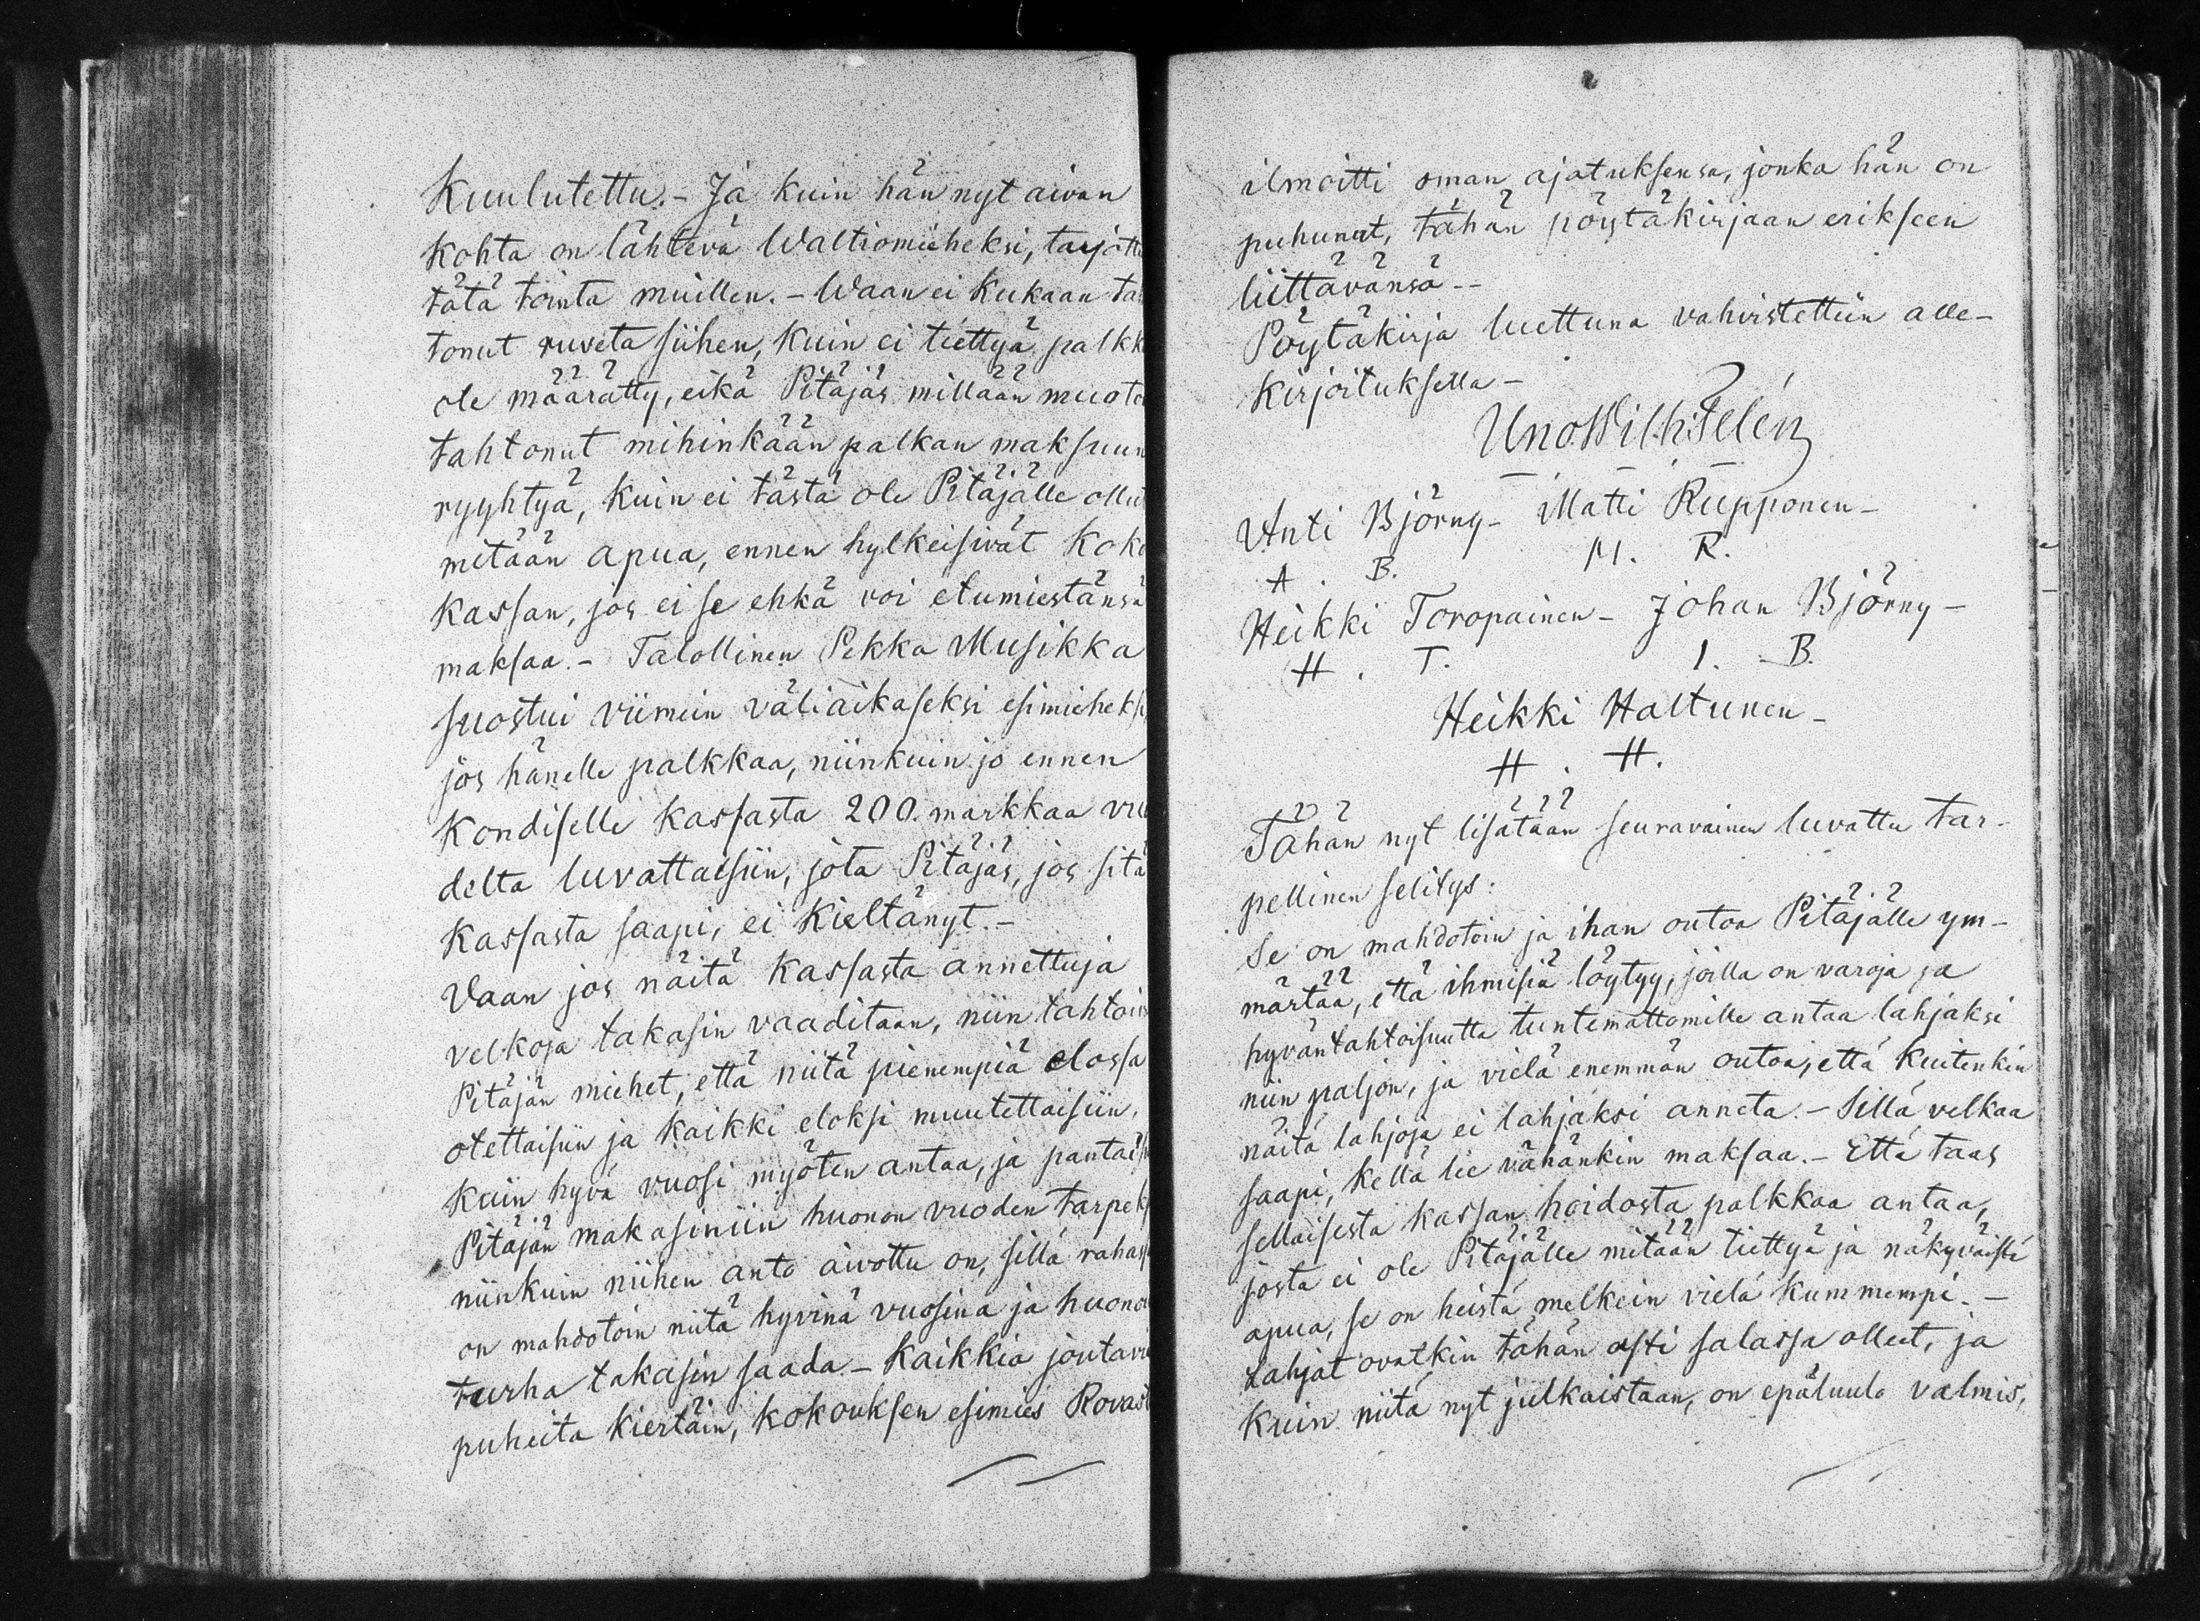 Kuulutettu. - Ja kuin hän nyt aivan
kohta on lähtevä Waltiomieheksi, tarjottu
tätä tointa muillen. - Waan ei kukaan tah
tonut ruveta siihen, kuin ei tiettyä palkk
ole määrätty, eikä Pitäjäs millään muoto
tahtonut mihinkään palkan maksuun
ryyhtyä, kuin ei tästä ole Pitäjälle ollut
mitään apua, ennen hylkeisivät koko
kassan, jos ei se ehkä voi etumiestänsä
maksaa. - Talollinen Pekka Musikka
suostui viimein väliaikaseksi esimieheksi
jos hänelle palkkaa, niinkuin jo ennen
Kondiselle kassasta 200. markkaa vuo
delta luvattaisiin, jota Pitäjäs, jos sitä
kassasta saapi, ei kieltänyt. -
Vaan jos näitä kassasta annettuja
velkoja takasin vaaditaan, niin tahtoi
Pitäjän miehet, että niitä pienempiä elossa
otettaisiin ja kaikki eloksi muutettaisiin,
kuin hyvä vuosi myöten antaa, ja pantais
Pitäjän makasiniin huonon vuoden tarpeks
niinkuin niihen anto aivottu on, sillä rahas
on mahdotoin niitä hyvinä vuosina ja huono
turha takasin saada. - Kaikkia joutavi
puheita kiertäin, kokouksen esimies Rovasti
ilmoitti oman ajatuksensa, jonka hän on
puhunut, tähän pöytäkirjaan erikseen
liittävänsä --
Pöytäkirja luettuna vahvistettiin alle-
kirjoituksella -
Uno Wilh: Telén
Anti Björny - Matti Riepponen -
A. B. M. R.
Heikki Toropainen - Johan Björny -
H. T. I. B.
Heikki Haltunen -
H. H.
Tähän nyt lisätään seuravainen luvattu tar-
pellinen selitys:
Se on mahdotoin ja ihan outoa Pitäjälle ym-
märtää, että ihmisiä löytyy, joilla on varoja ja
hyväntahtoisuutta tuntemattomille antaa lahjaksi
niin paljon, ja vielä enemmän outoa, että kuitenkin
näitä lahjoja ei lahjaksi anneta. - Sillä velkaa
saapi, kellä lie vähänkin maksaa. - Että taas
sellaisesta kassan hoidosta palkkaa antaa,
josta ei ole Pitäjälle mitään tiettyä ja näkyväistä
apua, se on heistä melkein vielä kummempi. -
Lahjat ovatkin tähän asti salassa olleet, ja
kuin niitä nyt julkaistaan, on epäluulo valmis,